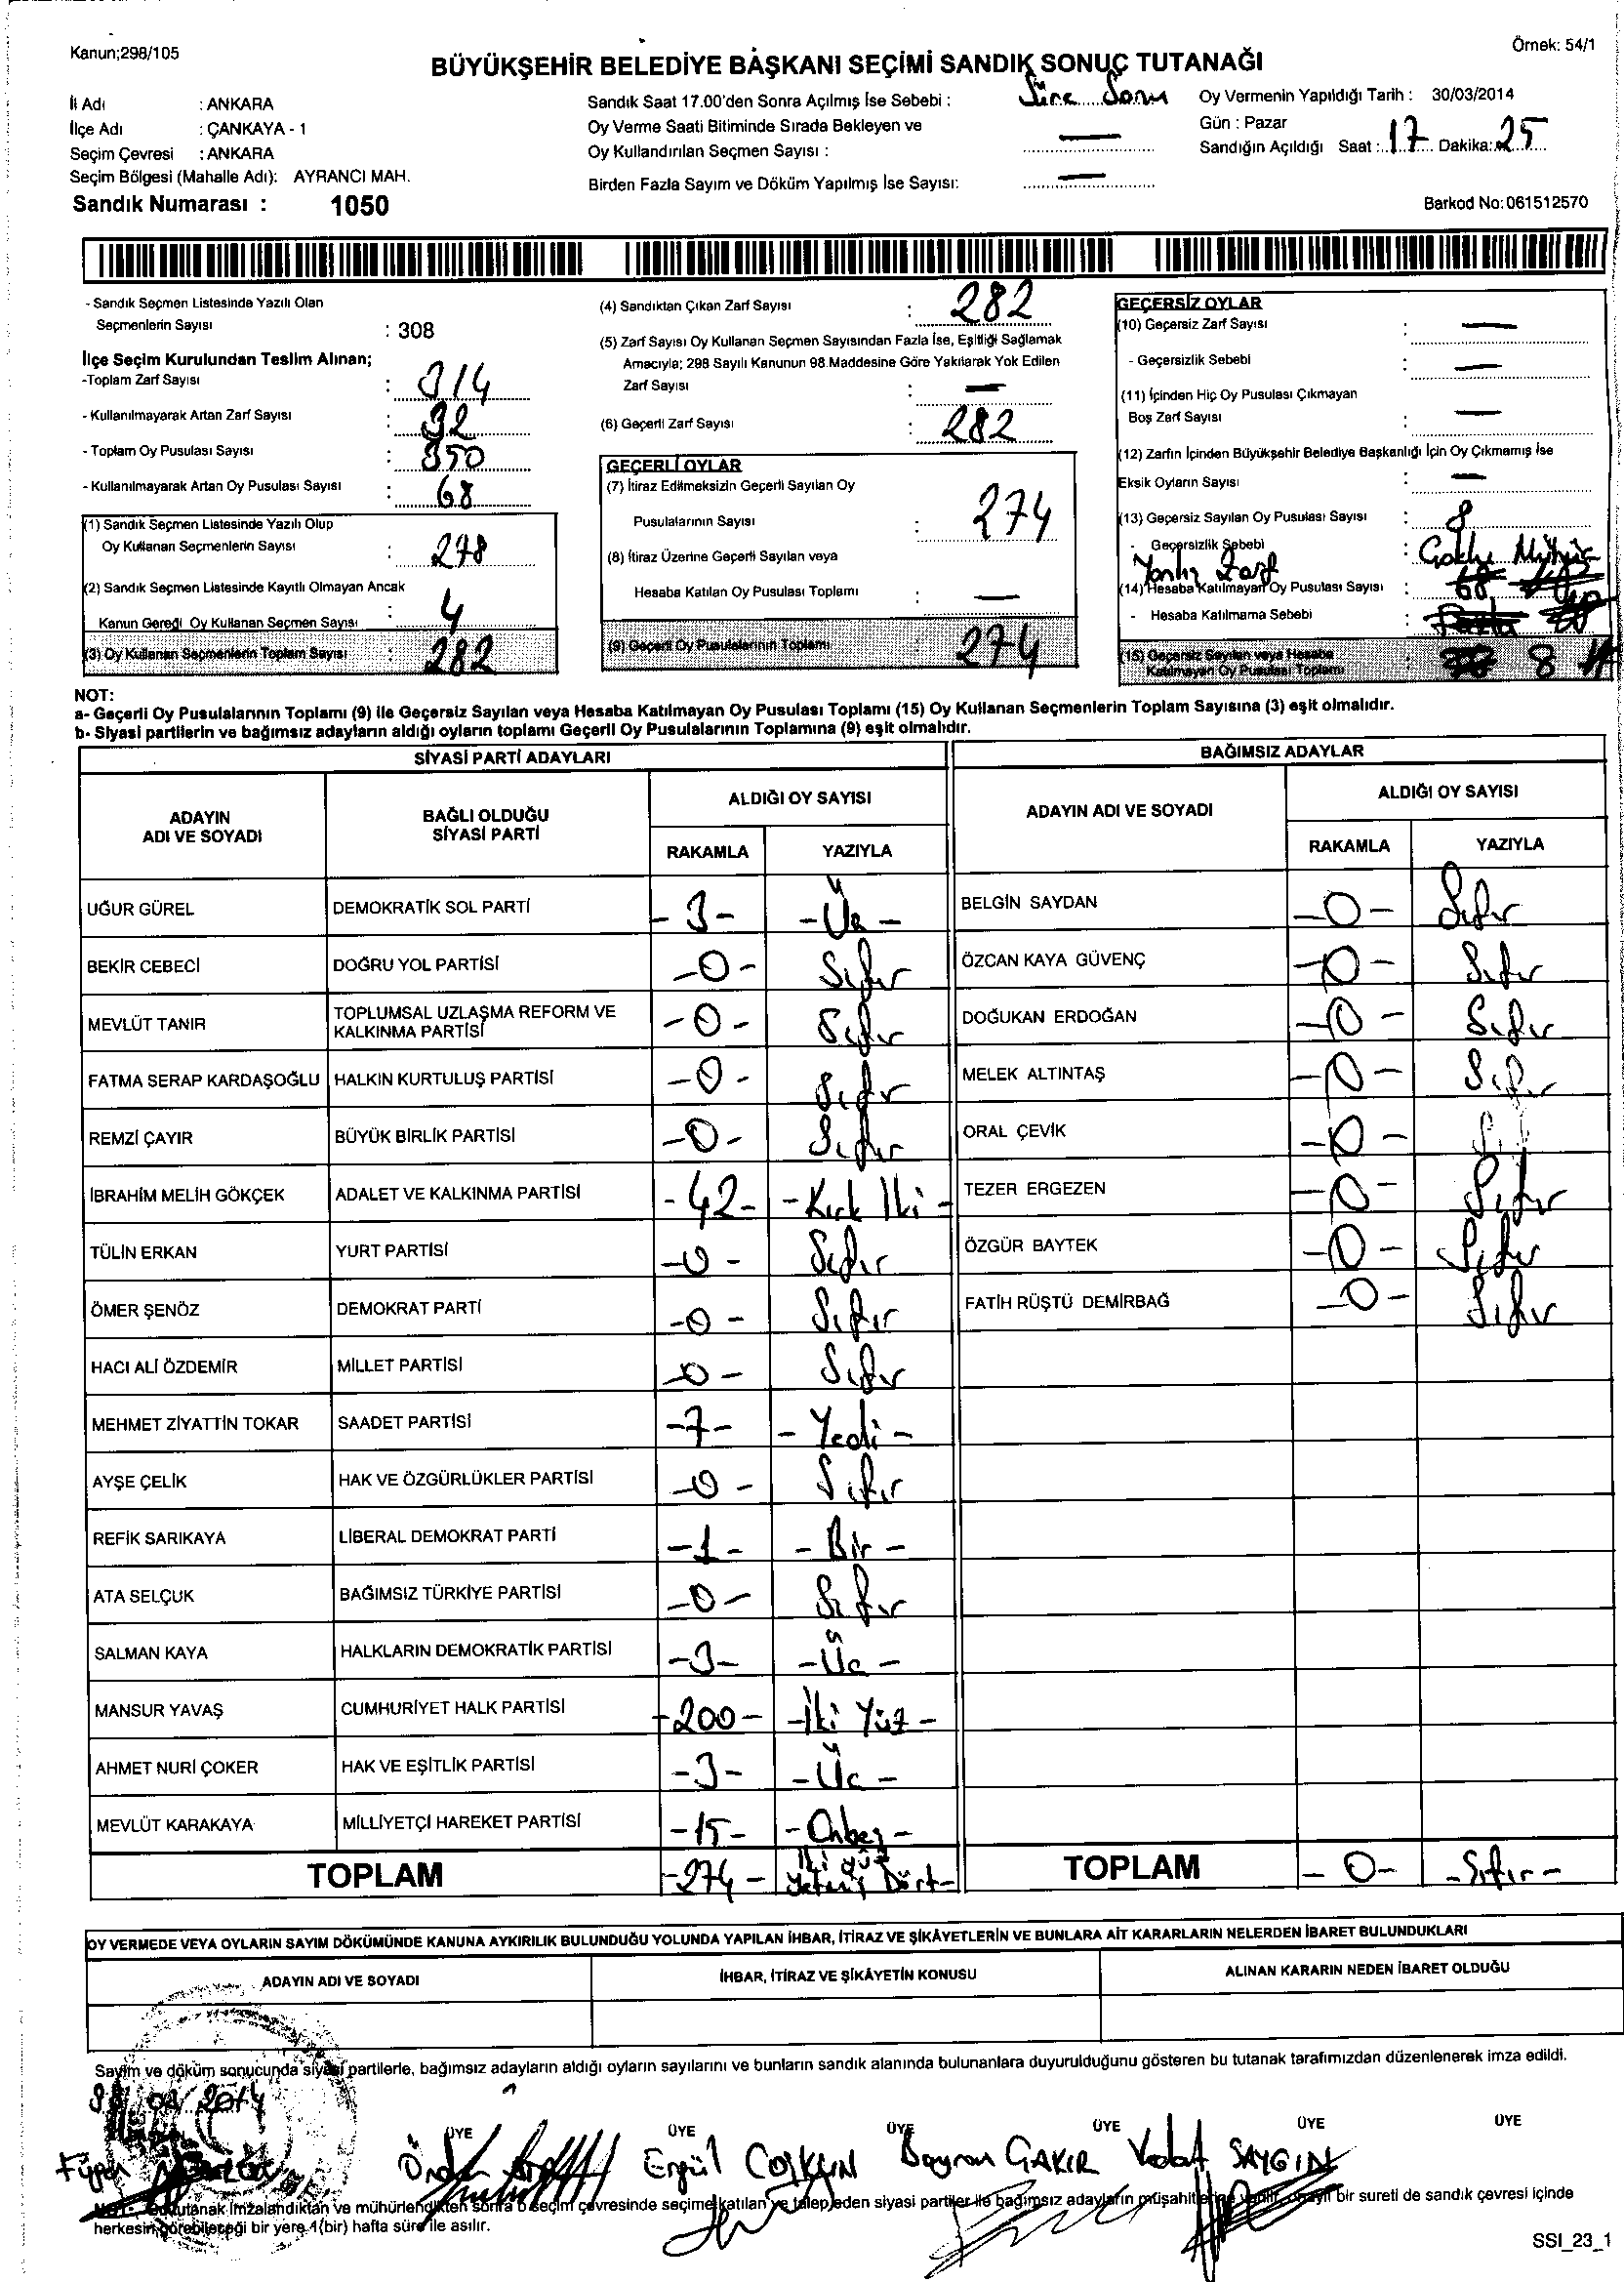 Kanun;298/105
Örnek: 54/1
BÜYÜKŞEHİR BELEDİYE BAŞKANI SEÇİMİ SANDIK SONUÇ TUTANAĞI
İl Adı : ANKARA
İlçe Adı : ÇANKAYA - 1
Seçim Çevresi : ANKARA
Seçim Bölgesi (Mahalle Adı): AYRANCI MAH.
Sandık Numarası : 1050
Sandık Saat 17.00'den Sonra Açılmış İse Sebebi : Süre Sonu
Oy Verme Saati Bitiminde Sırada Bekleyen ve
Oy Kullandırılan Seçmen Sayısı : —
Birden Fazla Sayım ve Döküm Yapılmış İse Sayısı: —
Oy Vermenin Yapıldığı Tarih : 30/03/2014
Gün : Pazar
Sandığın Açıldığı Saat : 17 Dakika: 25
Barkod No: 061512570
- Sandık Seçmen Listesinde Yazılı Olan
Seçmenlerin Sayısı : 308
İlçe Seçim Kurulundan Teslim Alınan;
-Toplam Zarf Sayısı : 314
- Kullanılmayarak Artan Zarf Sayısı : 32
- Toplam Oy Pusulası Sayısı : 350
- Kullanılmayarak Artan Oy Pusulası Sayısı : 68
(1) Sandık Seçmen Listesinde Yazılı Olup
Oy Kullanan Seçmenlerin Sayısı : 278
(2) Sandık Seçmen Listesinde Kayıtlı Olmayan Ancak
Kanun Gereği Oy Kullanan Seçmen Sayısı : 4
(3) Oy Kullanan Seçmenlerin Toplam Sayısı : 282
(4) Sandıktan Çıkan Zarf Sayısı : 282
(5) Zarf Sayısı Oy Kullanan Seçmen Sayısından Fazla İse, Eşitliği Sağlamak
Amacıyla; 298 Sayılı Kanunun 98.Maddesine Göre Yakılarak Yok Edilen
Zarf Sayısı : —
(6) Geçerli Zarf Sayısı : 282
GEÇERLİ OYLAR
(7) İtiraz Edilmeksizin Geçerli Sayılan Oy
Pusulalarının Sayısı : 274
(8) İtiraz Üzerine Geçerli Sayılan veya
Hesaba Katılan Oy Pusulası Toplamı : —
(9) Geçerli Oy Pusulalarının Toplamı : 274
GEÇERSİZ OYLAR
(10) Geçersiz Zarf Sayısı : —
- Geçersizlik Sebebi : —
(11) İçinden Hiç Oy Pusulası Çıkmayan
Boş Zarf Sayısı : —
(12) Zarfın İçinden Büyükşehir Belediye Başkanlığı İçin Oy Çıkmamış İse
Eksik Oyların Sayısı : —
(13) Geçersiz Sayılan Oy Pusulası Sayısı : 8
- Geçersizlik Sebebi :
(14) Hesaba Katılmayan Oy Pusulası Sayısı : 68
- Hesaba Katılmama Sebebi :
(15) Geçersiz Sayılan veya Hesaba
Katılmayan Oy Pusulası Toplamı : 8
NOT:
a- Geçerli Oy Pusulalarının Toplamı (9) ile Geçersiz Sayılan veya Hesaba Katılmayan Oy Pusulası Toplamı (15) Oy Kullanan Seçmenlerin Toplam Sayısına (3) eşit olmalıdır.
b- Siyasi partilerin ve bağımsız adayların aldığı oyların toplamı Geçerli Oy Pusulalarının Toplamına (9) eşit olmalıdır.
SİYASİ PARTİ ADAYLARI
BAĞIMSIZ ADAYLAR
ADAYIN ADI VE SOYADI
BAĞLI OLDUĞU SİYASİ PARTİ
ALDIĞI OY SAYISI
RAKAMLA YAZIYLA
ADAYIN ADI VE SOYADI
ALDIĞI OY SAYISI
RAKAMLA YAZIYLA
UĞUR GÜREL DEMOKRATİK SOL PARTİ -3- -Üç-
BEKİR CEBECİ DOĞRU YOL PARTİSİ -0- Sıfır
MEVLÜT TANIR TOPLUMSAL UZLAŞMA REFORM VE KALKINMA PARTİSİ -0- Sıfır
FATMA SERAP KARDAŞOĞLU HALKIN KURTULUŞ PARTİSİ -0- Sıfır
REMZİ ÇAYIR BÜYÜK BİRLİK PARTİSİ -0- Sıfır
İBRAHİM MELİH GÖKÇEK ADALET VE KALKINMA PARTİSİ -42- -Kırk İki-
TÜLİN ERKAN YURT PARTİSİ -0- Sıfır
ÖMER ŞENÖZ DEMOKRAT PARTİ -0- Sıfır
HACI ALİ ÖZDEMİR MİLLET PARTİSİ -0- Sıfır
MEHMET ZİYATTİN TOKAR SAADET PARTİSİ -7- -Yedi-
AYŞE ÇELİK HAK VE ÖZGÜRLÜKLER PARTİSİ -0- Sıfır
REFİK SARIKAYA LİBERAL DEMOKRAT PARTİ -1- -Bir-
ATA SELÇUK BAĞIMSIZ TÜRKİYE PARTİSİ -0- Sıfır
SALMAN KAYA HALKLARIN DEMOKRATİK PARTİSİ -3- -Üç-
MANSUR YAVAŞ CUMHURİYET HALK PARTİSİ -200- -İki Yüz-
AHMET NURİ ÇOKER HAK VE EŞİTLİK PARTİSİ -3- -Üç-
MEVLÜT KARAKAYA MİLLİYETÇİ HAREKET PARTİSİ -15- -Onbeş-
TOPLAM -274- İki yüz Yetmiş Dört-
BELGİN SAYDAN -0- Sıfır
ÖZCAN KAYA GÜVENÇ -0- Sıfır
DOĞUKAN ERDOĞAN -0- Sıfır
MELEK ALTINTAŞ -0- Sıfır
ORAL ÇEVİK -0- Sıfır
TEZER ERGEZEN -0- Sıfır
ÖZGÜR BAYTEK -0- Sıfır
FATİH RÜŞTÜ DEMİRBAĞ -0- Sıfır
TOPLAM -0- -Sıfır-
OY VERMEDE VEYA OYLARIN SAYIM DÖKÜMÜNDE KANUNA AYKIRILIK BULUNDUĞU YOLUNDA YAPILAN İHBAR, İTİRAZ VE ŞİKÂYETLERİN VE BUNLARA AİT KARARLARIN NELERDEN İBARET BULUNDUKLARI
ADAYIN ADI VE SOYADI
İHBAR, İTİRAZ VE ŞİKÂYETİN KONUSU
ALINAN KARARIN NEDEN İBARET OLDUĞU
Sayım ve döküm sonucunda siyasi partilerle, bağımsız adayların aldığı oyların sayılarını ve bunların sandık alanında bulunanlara duyurulduğunu gösteren bu tutanak tarafımızdan düzenlenerek imza edildi.
ÜYE ÜYE ÜYE ÜYE ÜYE ÜYE
Ergül COŞKUN Bayram ÇAKIR Vedat SAYGIN
tutanak imzalandıktan ve mühürlendikten sonra b seçim çevresinde seçime katılan ve talep eden siyasi partiler ile bağımsız adayların müşahitlerine verilir, onaylı bir sureti de sandık çevresi içinde
herkesin görebileceği bir yere 1(bir) hafta süre ile asılır.
SSI_23_1